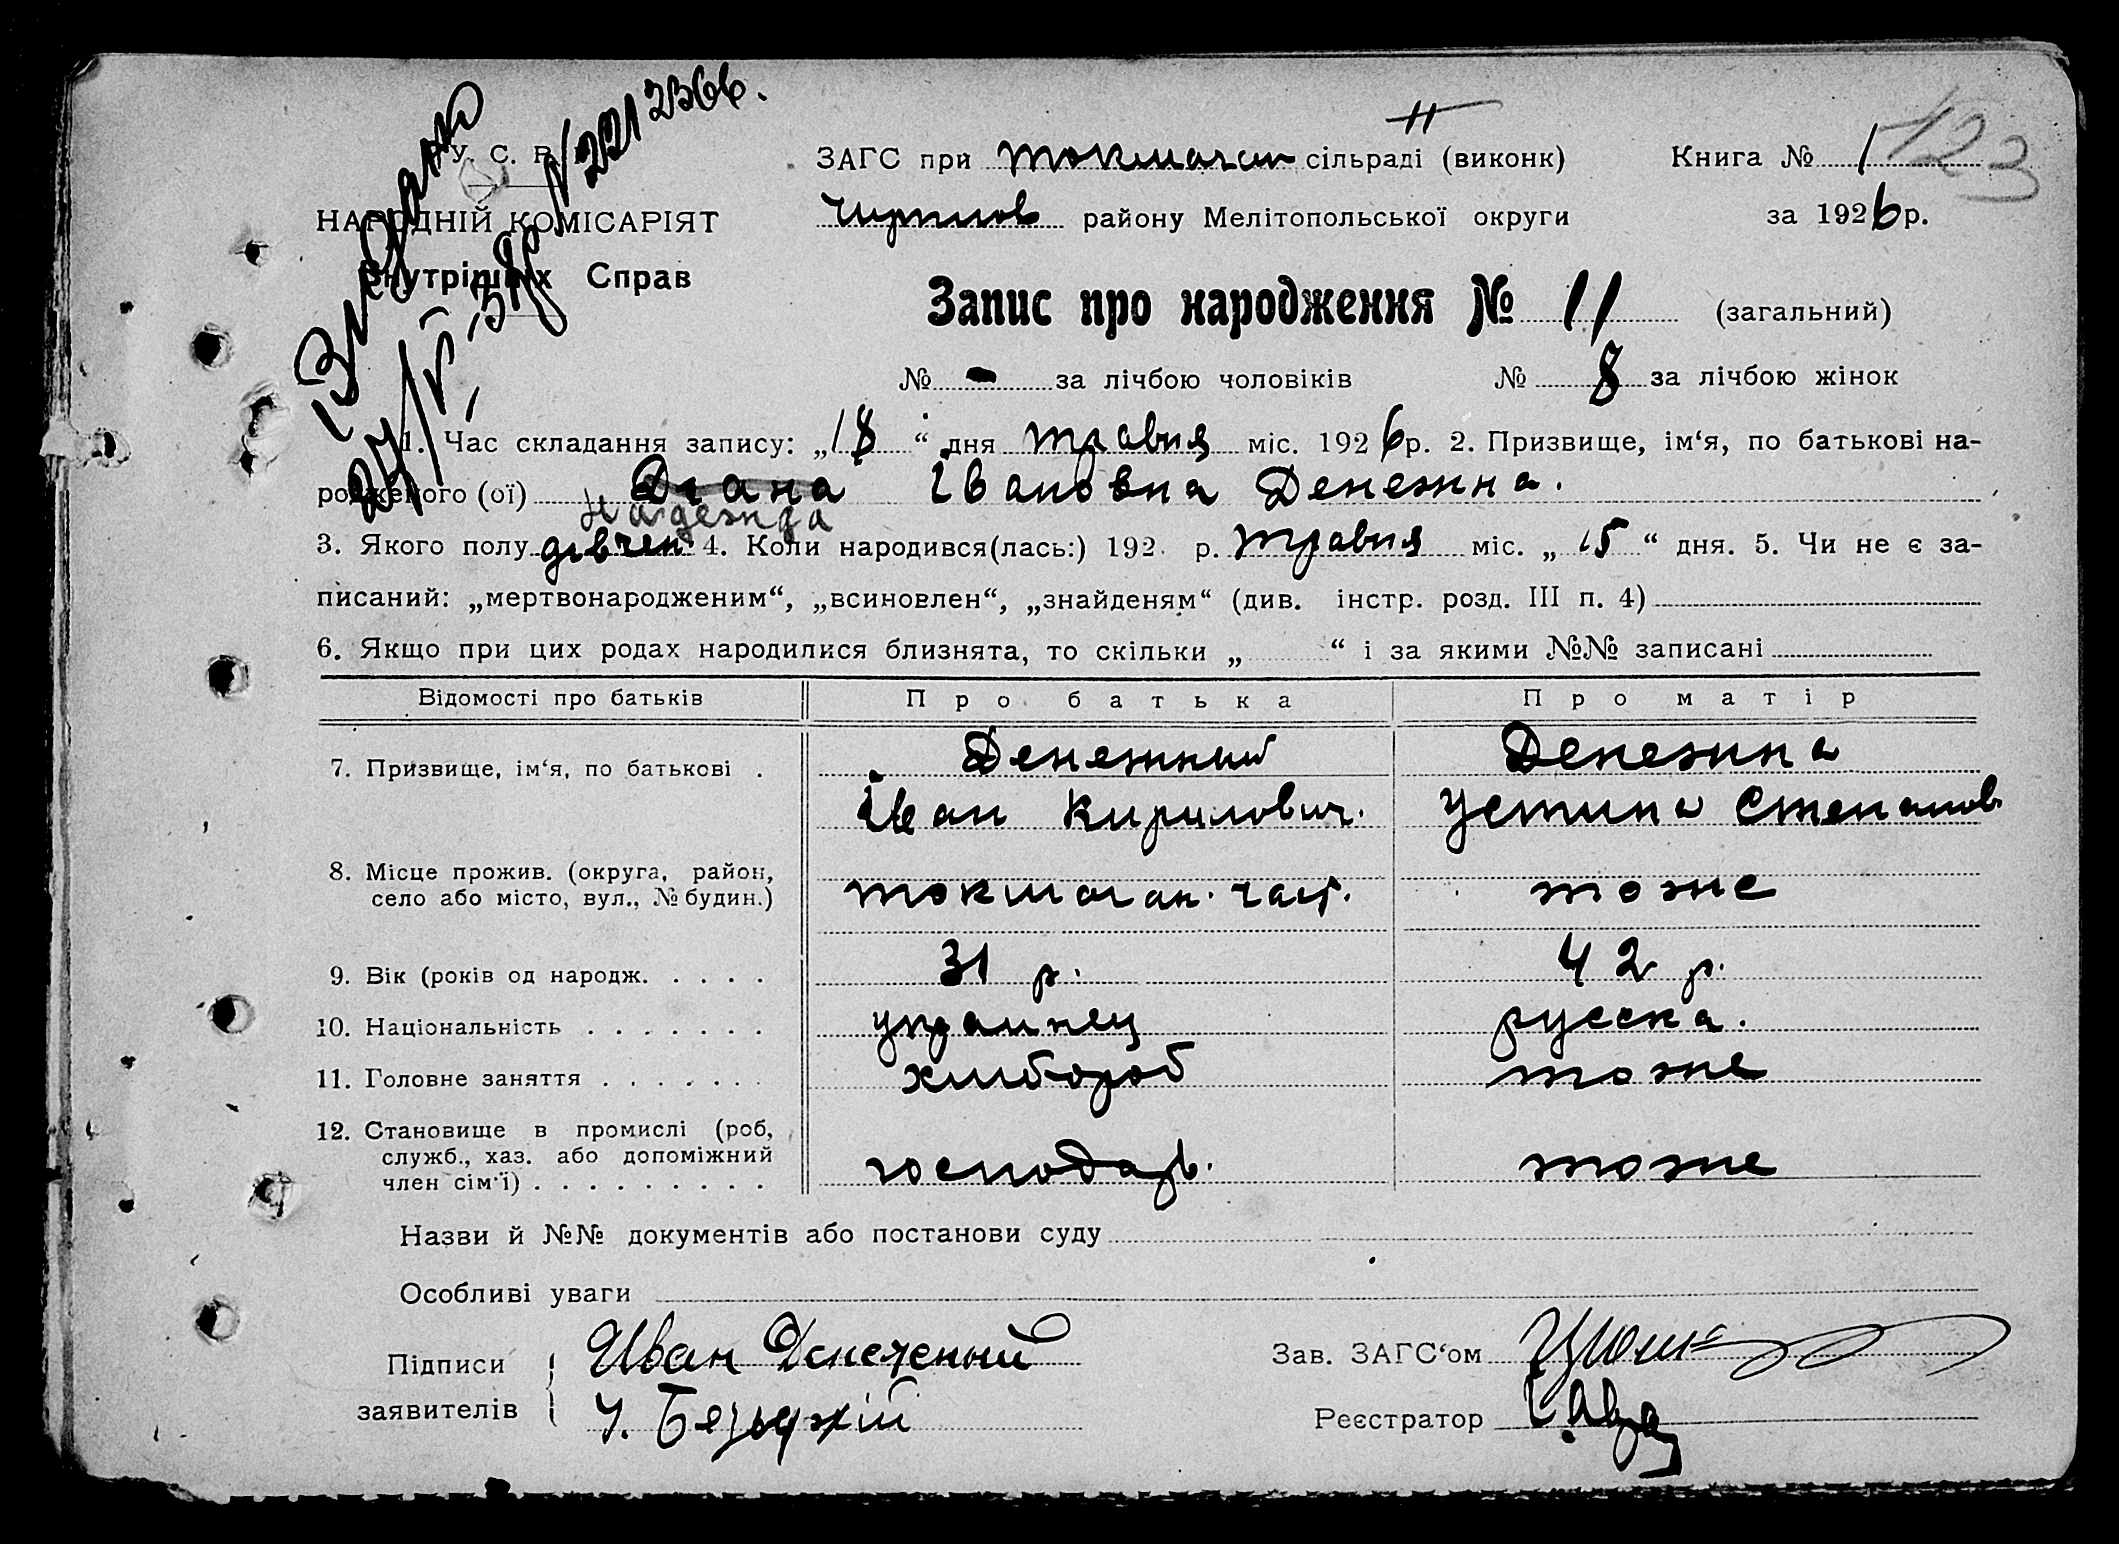 Видано N 221236б.
27/V, 38р
У. С. Р. Р.
НАРОДНІЙ КОМІСАРІЯТ
Внутрішніх Справ
11
ЗАГС при Токмачан сільраді (виконк) Книга № 1 123
Чернігов району Мелітопольської округи за 1926 р.
Запис про народження № 11 (загальний)
№ - за лічбою чоловіків № 8 за лічбою жінок
1. Час складання запису: „18“ дня травня міс. 1926 р. 2. Призвище, ім‘я, по батькові на-
родженого (ої) Діана Івановна Денежна.
Надежда
3. Якого полу дівчен. 4. Коли народився(лась:) 192 р. травня міс. „15“ дня. 5. Чи не є за-
писаний: „мертвонародженим“, „всиновлен“, „знайденям“ (див. інстр. розд. III п. 4)
6. Якщо при цих родах народилися близнята, то скільки „ “ і за якими №№ записані
Відомості про батьків Про батька Про матір
7. Призвище, ім‘я, по батькові . Денежний Денежна
Іван Кирилович. Устина Степанов.
8. Місце прожив. (округа, район,
село або місто, вул., № будин.) Токмачан. тоже
9. Вік (років од народж. . . . . 31 р. 42 р.
10. Національність . . . . . . . украинец русска.
11. Головне заняття . . . . . . . хлибороб тоже
12. Становище в промислі (роб,
служб., хаз. або допоміжний
член сім‘ї) . . . . . . . . . господарь. тоже
Назви й №№ документів або постанови суду
Особливі уваги
Підписи Иван Денеженый Зав. ЗАГС‘ом
заявителів Реєстратор